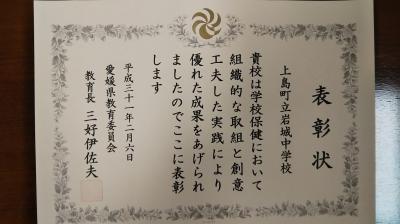 表彰状
上島町立岩城中学校
貴校は学校保健において
組織的な取組と創意
工夫した実践により
優れた成果をあげられ
ましたのでここに表彰
します
平成三十一年二月六日
愛媛県教育委員会
教育長 三好伊佐夫